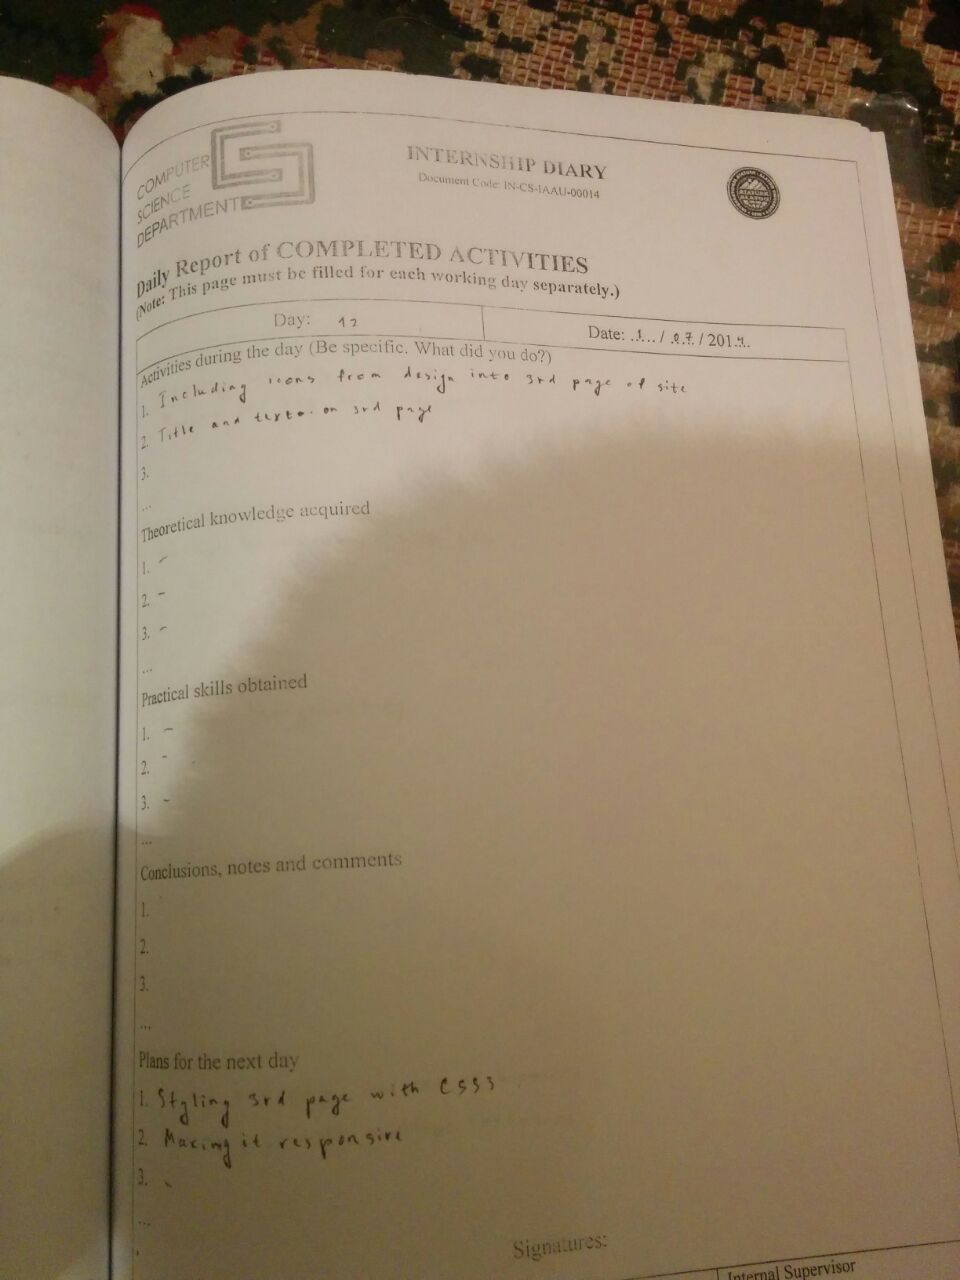 COMPUTER
SCIENCE
DEPARTMENT
INTERNSHIP DIARY
Document Code: IN-CS-IAAU-00014
Daily Report of COMPLETED ACTIVITIES
(Note: This page must be filled for each working day separately.)
Day: 12
Date: ..1.. / .07. / 201
Activities during the day (Be specific. What did you do?)
1. Including icons from design into 3rd page of site
2. Title and texto. on 3rd page
3.
...
Theoretical knowledge acquired
1. -
2. -
3. -
...
Practical skills obtained
1. -
2. -
3. -
...
Conclusions, notes and comments
1.
2.
3.
...
Plans for the next day
1. Styling 3rd page with CSS3
2. Making it responsive
3.
...
Signatures:
Internal Supervisor